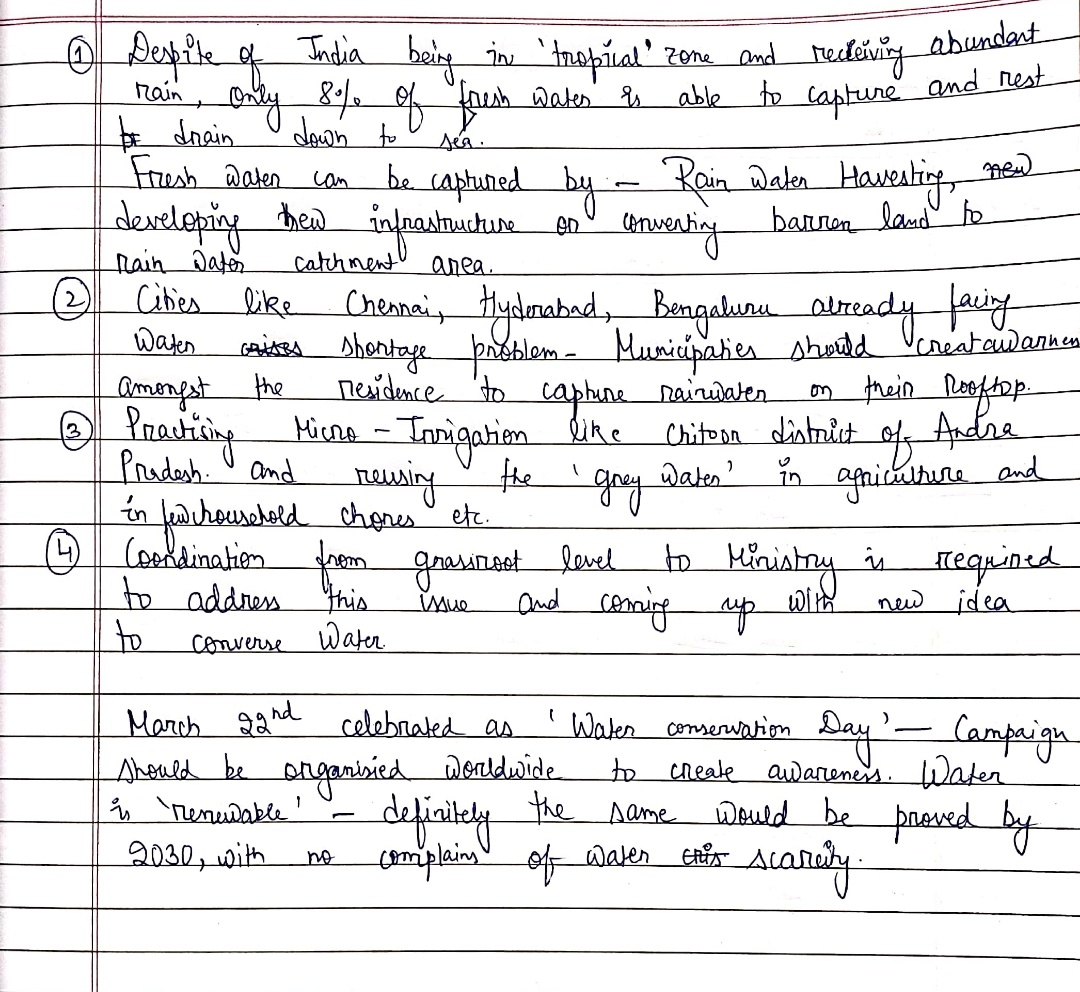 ① Despite of India being in 'tropical' zone and receiving abundant
rain, only 8% of fresh water is able to capture and rest
drain down to sea.
Fresh water can be captured by - Rain Water Havesting, new
developing new infrastructure or converting barren land to
rain water catchment area.
② Cities like Chennai, Hyderabad, Bengaluru already facing
water crises shortage problem - Municipaties should creat awarnen
amongst the residence to capture rainwater on their Rooftop.
③ Practising Micro - Irrigation like Chitoor district of Andra
Pradesh. and reusing the 'grey water' in agriculture and
in few household chores etc.
④ Coordination from grassroot level to Ministry is required
to address this issue and coming up with new idea
to converse water.
March 22nd celebrated as 'Water conservation Day' - Campaign
should be organisied worldwide to create awareness. Water
is 'renewable' - definitely the same would be proved by
2030, with no complains of water cris scarcity.